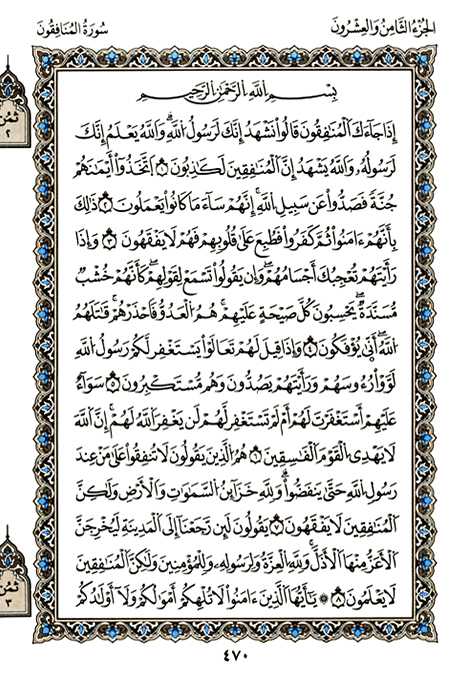 الجُزْءُ الثَّامِنُ وَالعِشْرُونَ
سُورَةُ المُنَافِقُونَ
بِسْمِ اللَّهِ الرَّحْمَٰنِ الرَّحِيمِ
إِذَا جَآءَكَ الْمُنَٰفِقُونَ قَالُوا۟ نَشْهَدُ إِنَّكَ لَرَسُولُ اللَّهِ ۗ وَاللَّهُ يَعْلَمُ إِنَّكَ
لَرَسُولُهُۥ وَاللَّهُ يَشْهَدُ إِنَّ الْمُنَٰفِقِينَ لَكَٰذِبُونَ ١ اتَّخَذُوٓا۟ أَيْمَٰنَهُمْ
جُنَّةً فَصَدُّوا۟ عَن سَبِيلِ اللَّهِ ۚ إِنَّهُمْ سَآءَ مَا كَانُوا۟ يَعْمَلُونَ ٢ ذَٰلِكَ
بِأَنَّهُمْ ءَامَنُوا۟ ثُمَّ كَفَرُوا۟ فَطُبِعَ عَلَىٰ قُلُوبِهِمْ فَهُمْ لَا يَفْقَهُونَ ٣ وَإِذَا
رَأَيْتَهُمْ تُعْجِبُكَ أَجْسَامُهُمْ ۖ وَإِن يَقُولُوا۟ تَسْمَعْ لِقَوْلِهِمْ ۖ كَأَنَّهُمْ خُشُبٌ
مُّسَنَّدَةٌ ۖ يَحْسَبُونَ كُلَّ صَيْحَةٍ عَلَيْهِمْ ۚ هُمُ الْعَدُوُّ فَاحْذَرْهُمْ ۚ قَٰتَلَهُمُ
اللَّهُ ۖ أَنَّىٰ يُؤْفَكُونَ ٤ وَإِذَا قِيلَ لَهُمْ تَعَالَوْا۟ يَسْتَغْفِرْ لَكُمْ رَسُولُ اللَّهِ
لَوَّوْا۟ رُءُوسَهُمْ وَرَأَيْتَهُمْ يَصُدُّونَ وَهُم مُّسْتَكْبِرُونَ ٥ سَوَآءٌ
عَلَيْهِمْ أَسْتَغْفَرْتَ لَهُمْ أَمْ لَمْ تَسْتَغْفِرْ لَهُمْ لَن يَغْفِرَ اللَّهُ لَهُمْ ۚ إِنَّ اللَّهَ
لَا يَهْدِى الْقَوْمَ الْفَٰسِقِينَ ٦ هُمُ الَّذِينَ يَقُولُونَ لَا تُنفِقُوا۟ عَلَىٰ مَنْ عِندَ
رَسُولِ اللَّهِ حَتَّىٰ يَنفَضُّوا۟ ۗ وَلِلَّهِ خَزَآئِنُ السَّمَٰوَٰتِ وَالْأَرْضِ وَلَٰكِنَّ
الْمُنَٰفِقِينَ لَا يَفْقَهُونَ ٧ يَقُولُونَ لَئِن رَّجَعْنَآ إِلَى الْمَدِينَةِ لَيُخْرِجَنَّ
الْأَعَزُّ مِنْهَا الْأَذَلَّ ۚ وَلِلَّهِ الْعِزَّةُ وَلِرَسُولِهِۦ وَلِلْمُؤْمِنِينَ وَلَٰكِنَّ الْمُنَٰفِقِينَ
لَا يَعْلَمُونَ ٨ ۞ يَٰٓأَيُّهَا الَّذِينَ ءَامَنُوا۟ لَا تُلْهِكُمْ أَمْوَٰلُكُمْ وَلَآ أَوْلَٰدُكُمْ
ثُمُن
٢
ثُمُن
٣
٤٧٠